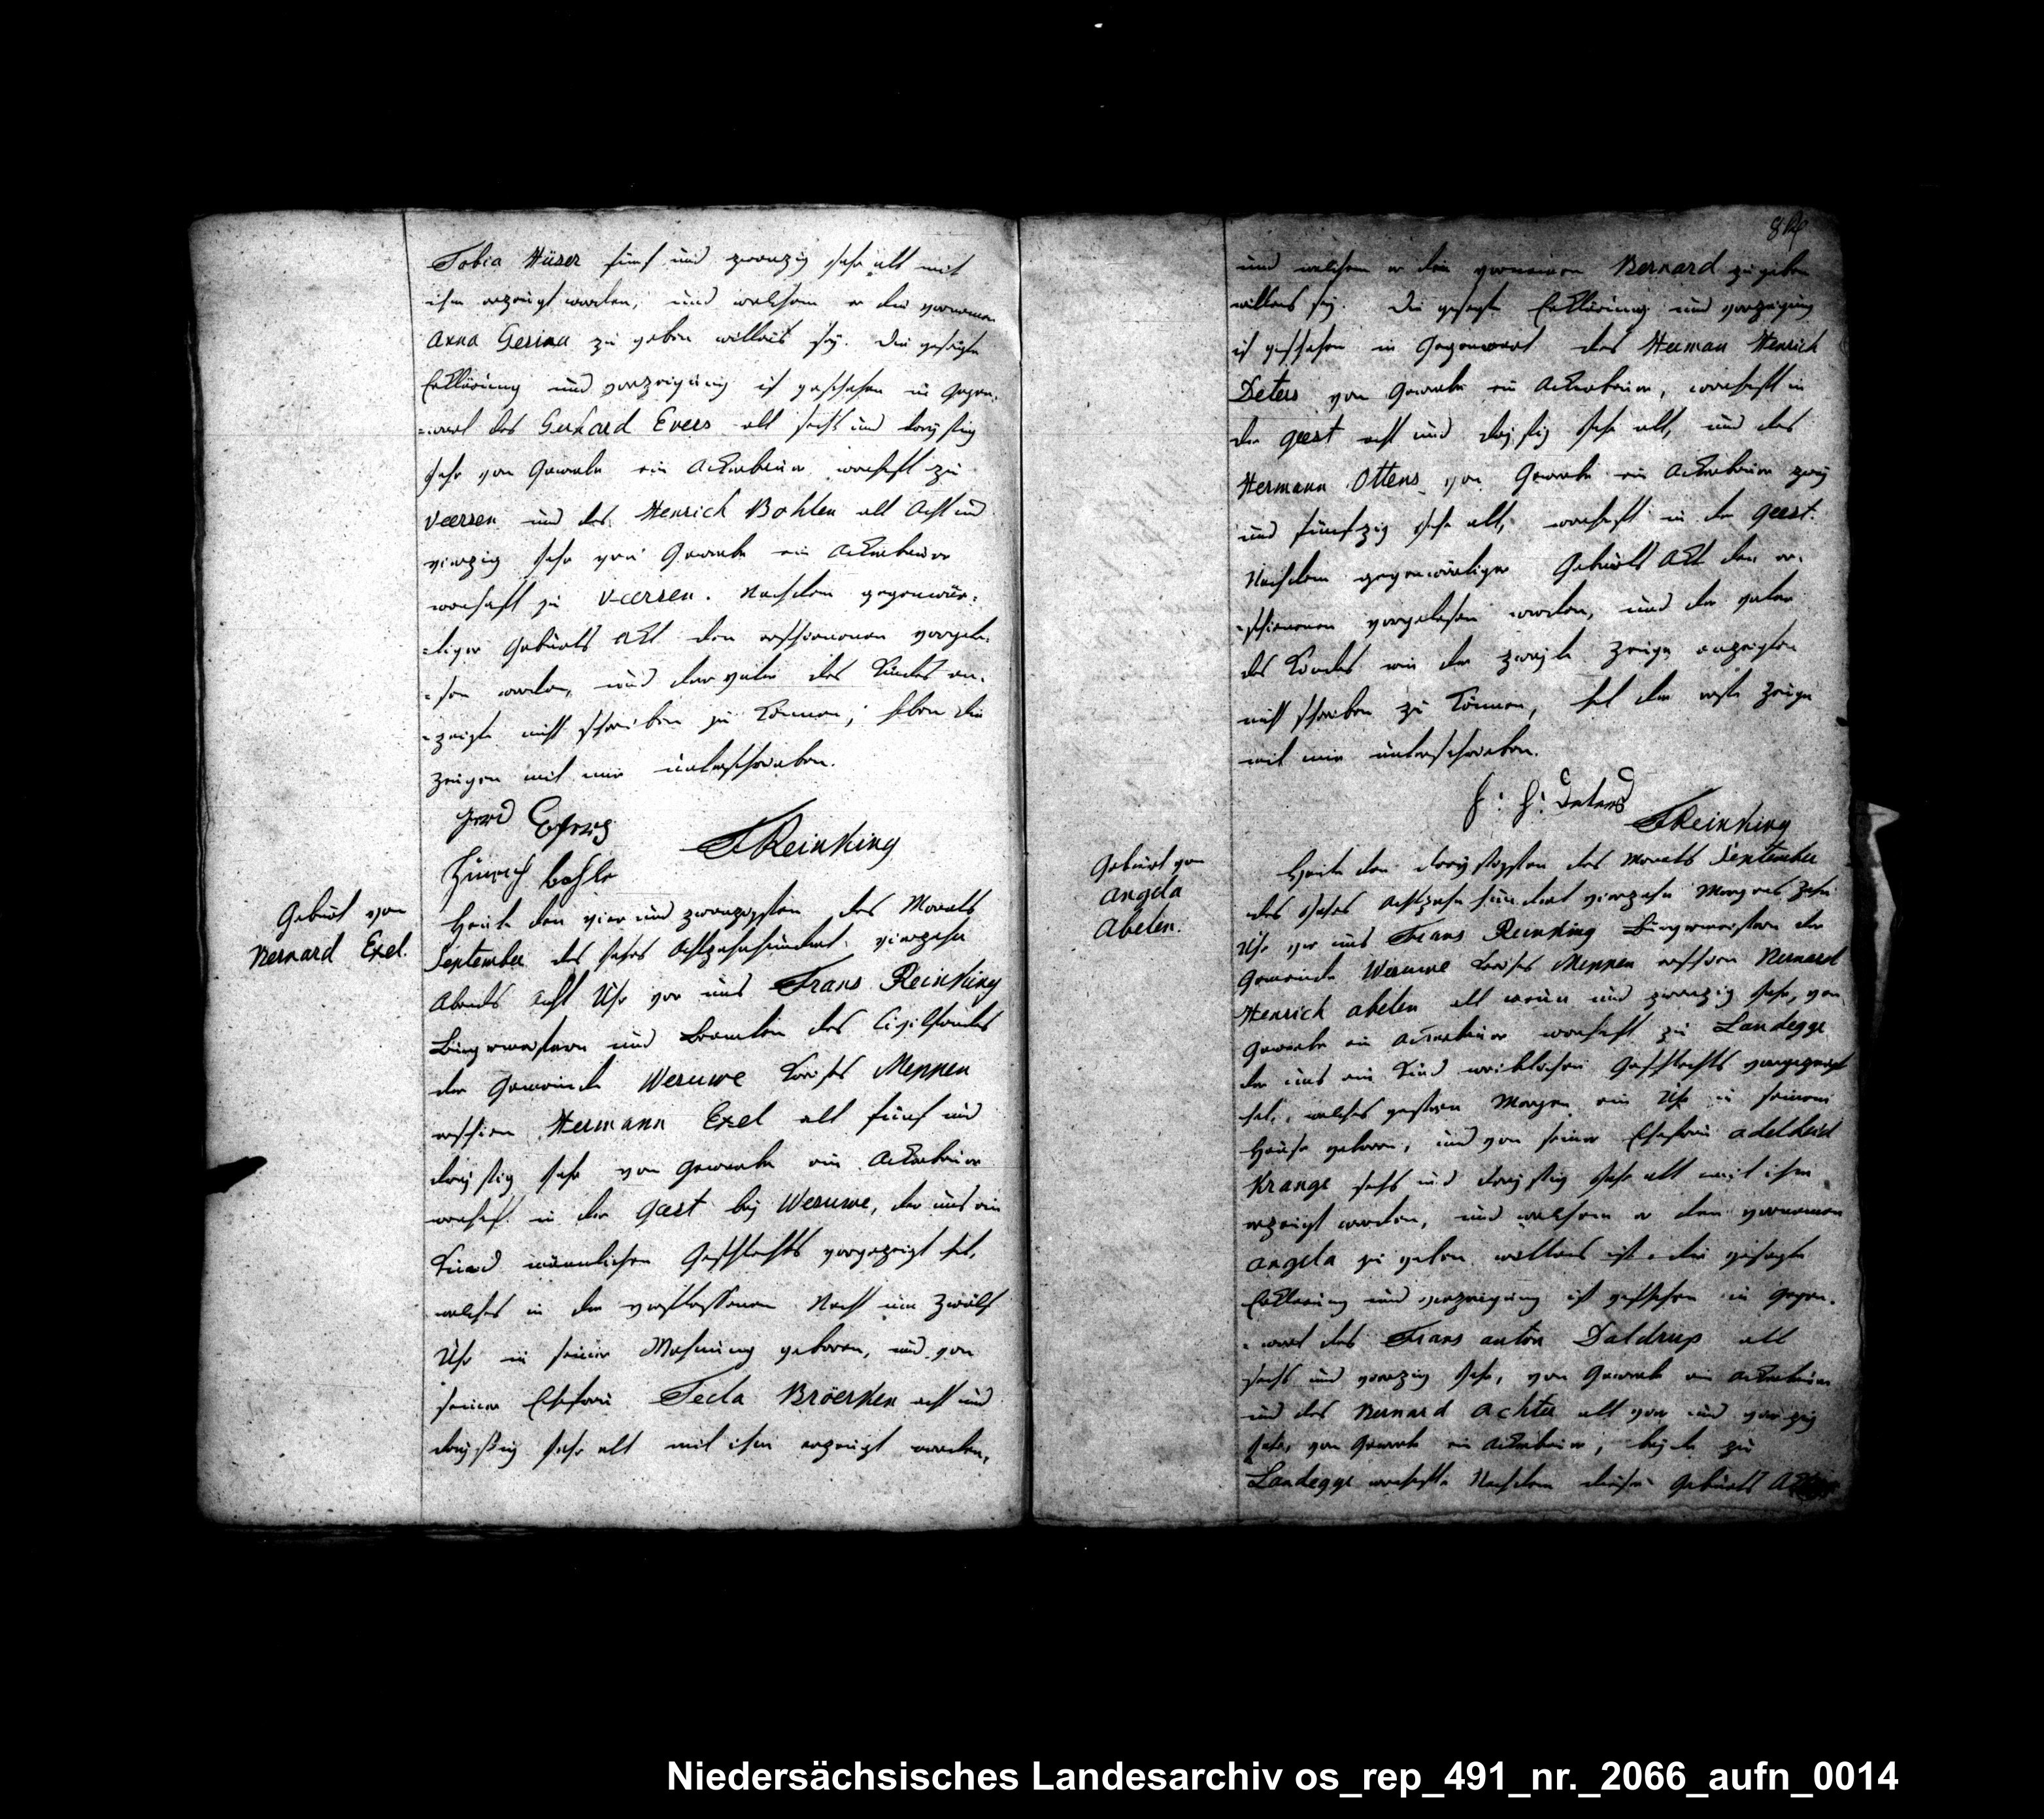 Tobia Hüser fünf und zwanzig Jahr alt mit
ihm erzeugt worden, und welchem er den vornamen
Anna Gesina zu geben willens sey. Die gesagte
Erklärung und vorzeigung ist geschehen in Gegen-
-wart des Gerhard Evers alt sechs und dreyßig
Jahr von Gewerbe ein Ackerbauer wohnhaft zu
Veersen und des Henrich Bohlen alt Acht und
vierzig Jahr von Gewerbe ein Ackerbauer
wonhaft zu Veersen. Nachdem gegenwär-
-tiger Geburts Akt den erschienenen vorgele-
-sen worden, und der vater des Kindes an-
-zeigte nicht schreiben zu können, haben die
Zeugen mit mir unterschrieben.
Gerd Evers
Hinrich bohle
FReinking
Geburt von
Bernard Exel.
Heute den vier und zwanzigsten des Monats
September des Jahrs Achtzehnhundert vierzehn
Abends acht Uhr vor uns Frans Reinking
Bürgermeistern und Beamten des Civilstandes
der Gemeinde Wesuwe Kreises Meppen
erschien Hermann Exel alt fünf und
dreyßig Jahr von Gewerbe ein Ackerbauer
wonhaft in der Geest bey Wesuwe, der uns ein
Kind männlichen Geschlechts vorgezeigt hat,
welches in der verflossenen Nacht um zwölf
Uhr in seiner Wohnung geboren, und von
seiner Ehefrau Tecla Bröerken acht und
dreyßig Jahr alt mit ihm erzeugt worden,
und welchem er den vornamen Bernard zu geben
willens sey. Die gesagte Erklärung und vorzeigung
ist geschehen in Gegenwart des Herman Henrich
Deters von Gewerbe ein Ackerbauer, wonhaft in
der geest acht und dreyßig Jahr alt, und des
Hermann Ottens von Gewerbe ein Ackerbauer zwey
und fünfzig Jahr alt, wonhaft in der geest.
Nachdem gegenwärtiger Geburts Akt den er-
-schienenen vorgelesen worden, und der vater
des Kindes wie der zweyte Zeuge anzeigten
nicht schreiben zu können, hat der erste Zeuge
mit mir unterschrieben.
H: H: Deters
FReinking
Geburt von
Angela
Abelen.
Heute den dreyßigsten des Monats September
des Jahrs Achtzehn hundert vierzehn Morgens zehn
Uhr vor uns Frans Reinking Bürgermeistern der
Gemeinde Wesuwe Kreises Meppen erschien Bernard
Henrich abelen alt neun und zwanzig Jahr, von
Gewerbe ein Ackerbauer wonhaft zu Landegge
der uns ein Kind weiblichen Geschlechts vorgezeigt
hat, welches gestern Morgen ein Uhr in seinem
Hause geboren, und von seiner Ehefrau adelheid
Krange sechs und dreyßig Jahr alt mit ihm
erzeugt worden, und welchem er den vornamen
angela zu geben willens ist. die gesagte
Erklärung und vorzeigung ist geschehen in Gegen-
-wart des Frans anton Daldrup alt
sechs und vierzig Jahr, von Gewerbe ein Ackerbauer
und des Bernard Achter alt vier und vierzig
Jahr, von Gewerbe ein Ackerbauer, beyde zu
Landegge wonhaft. Nachdem dieser Geburts Akt